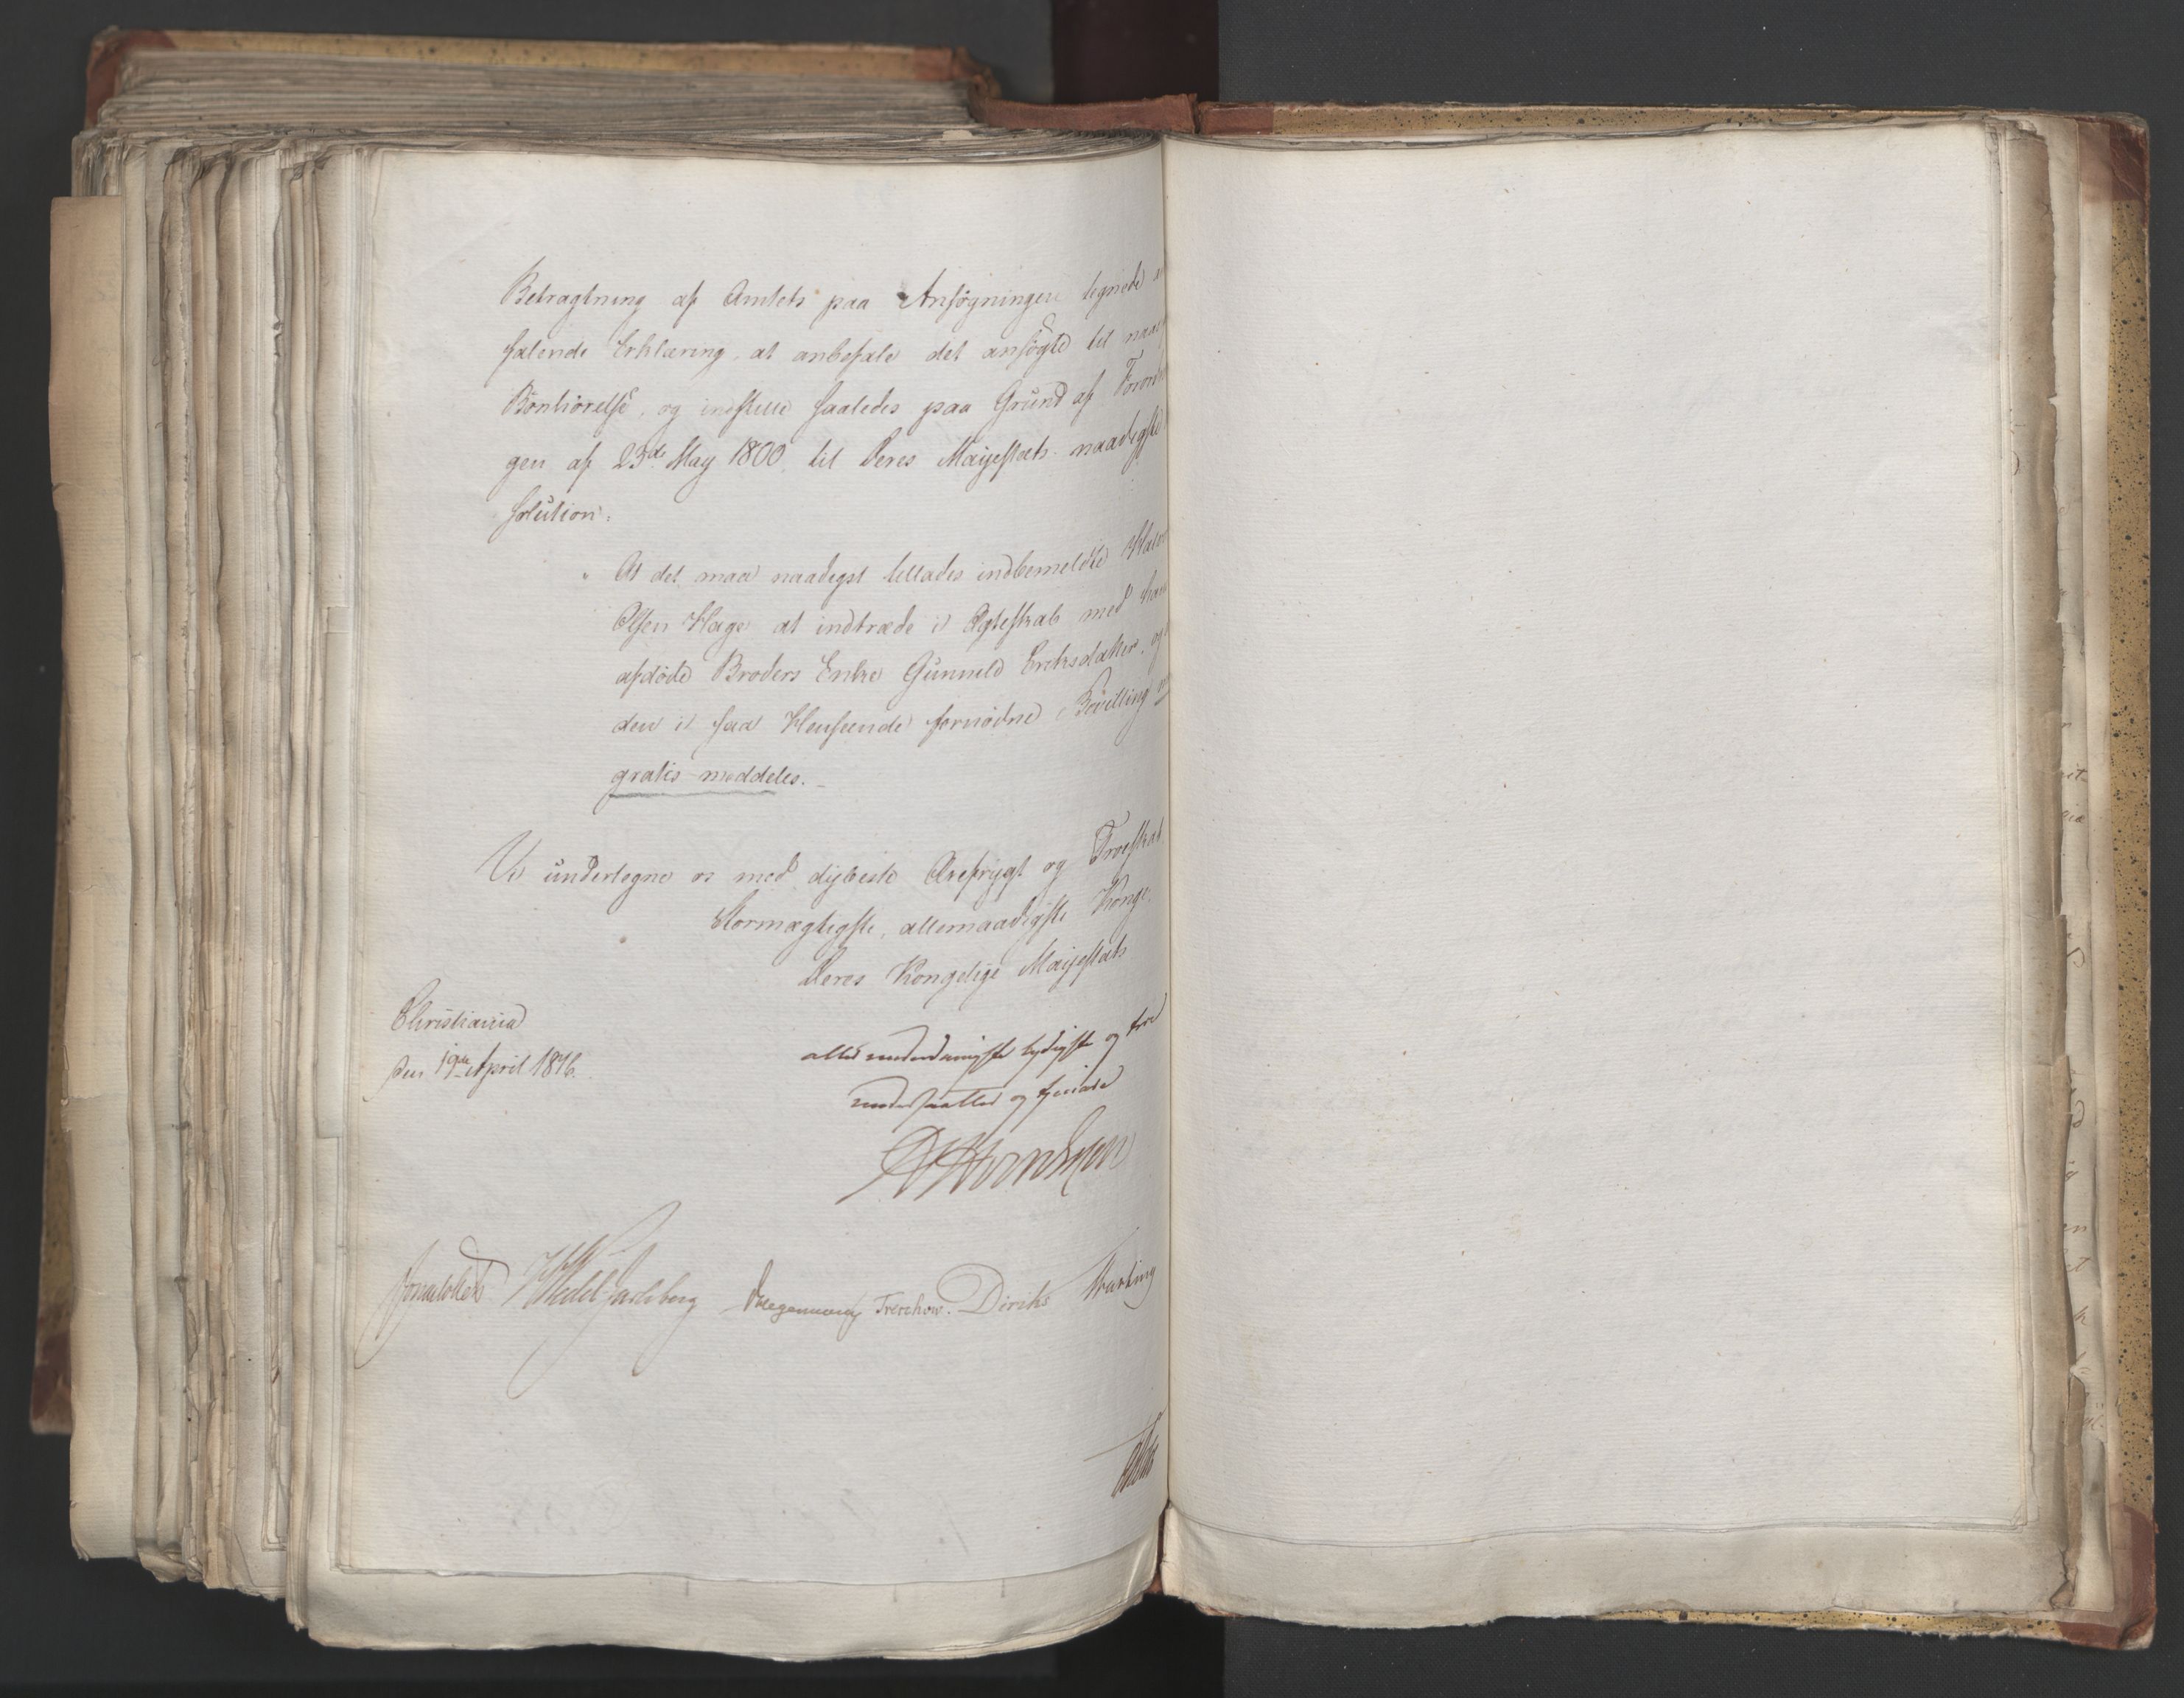 Betragtning af Amtets paa Ansøgningen tegnede
falende Erklæring, at anbefale det ansøgte til naad
Bønhørelse, og indstille saaledes paa Grund af Forord
gen af 23de May 1800 til Deres Majestæts naadigste
solution:
" At det maa naadigst tillades indbemeldte Halv
Olsen Hage at indtræde i Ægteskab med hans
afdøde Broders Enke Gunnild Eriksdatter, og
den i saa Henseende fornødne Bevilling
gratis meddeles. _
Vi undertegne os med dybeste Ærefrygt og Troeskab
Stormægtigste, allernaadigste Konge
Deres Kongelige Majestæts
Christiania
Den 19de April 1816.
allerunderdanigste lydigste og troe
undersaatter og tjenere
Wedel Jarlsberg Treschow. Diriks